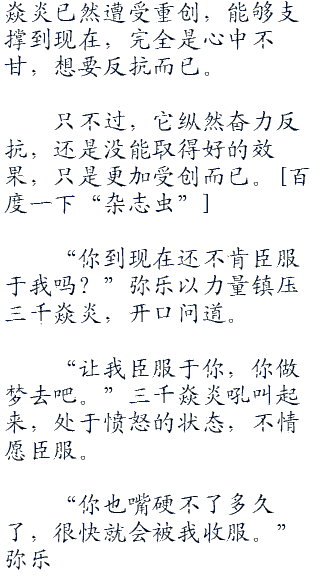 焱炎已然遭受重创，能够支
撑到现在，完全是心中不
甘，想要反抗而已。
只不过，它纵然奋力反
抗，还是没能取得好的效
果，只是更加受创而已。[百
度一下“杂志虫”]
“你到现在还不肯臣服
于我吗？”弥乐以力量镇压
三千焱炎，开口问道。
“让我臣服于你，你做
梦去吧。”三千焱炎吼叫起
来，处于愤怒的状态，不情
愿臣服。
“你也嘴硬不了多久
了，很快就会被我收服。”
弥乐